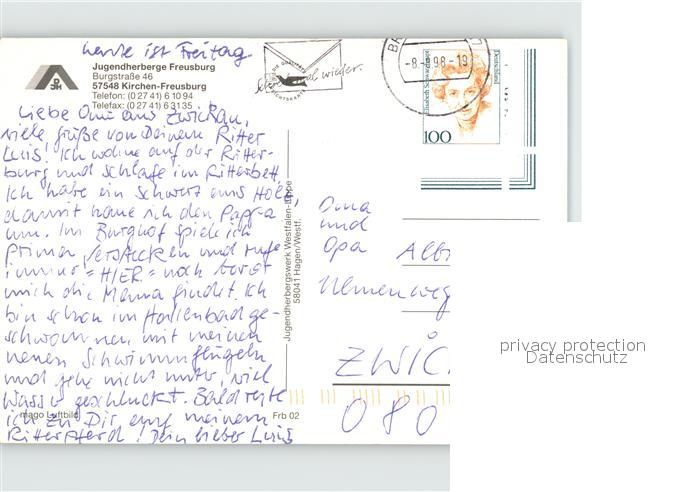 heute ist Freitag
Jugendherberge Freusburg
Burgstraße 46
57548 Kirchen-Freusburg
Telefon: (0 27 41) 6 10 94
Telefax: (0 27 41) 6 31 35
DJH
Liebe Omi aus Zwickau,
viele Grüße von Deinem Ritter
Luis! Ich wohne auf der Ritter-
burg und schlafe im Ritterbett.
Ich habe ein Schwert aus Holz,
damit haue ich den Pappa
um. Im Burghof spiele ich
prima Verstecken und rufe
immer "HIER" noch bevor
mich die Mama findet. Ich
bin schon im Hallenbad ge-
schwommen mit meinen
neuen Schwimmflügeln
und gehe nicht unter, viel
Wasser geschluckt. Bald reite
ich zu Dir auf meinem
Ritterpferd! Dein lieber Luis
mago Luftbild
Frb 02
Jugendherbergswerk Westfalen-Lippe
58041 Hagen/Westf.
mal wieder.
-8.-98-19
Elisabeth Schwarzhaupt
Deutschland
100
Oma
und
Opa Albr
Ulmenweg
ZWIC
080
privacy protection
Datenschutz